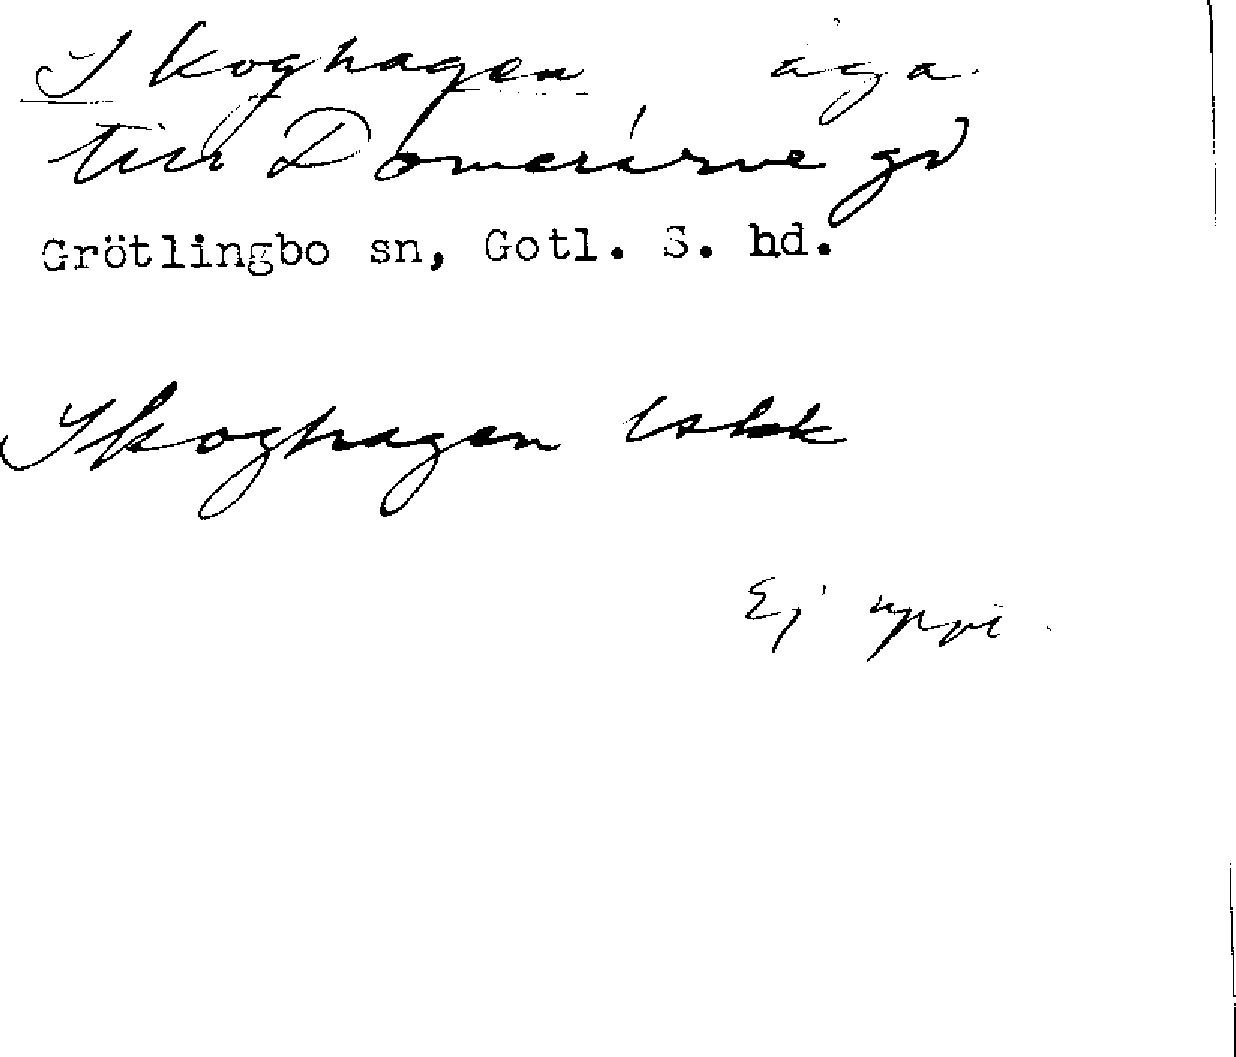 Skoghagen äga
till Domerärve gd
Grötlingbo sn, Gotl. S. hd.
Skoghagen
Ej uppt.